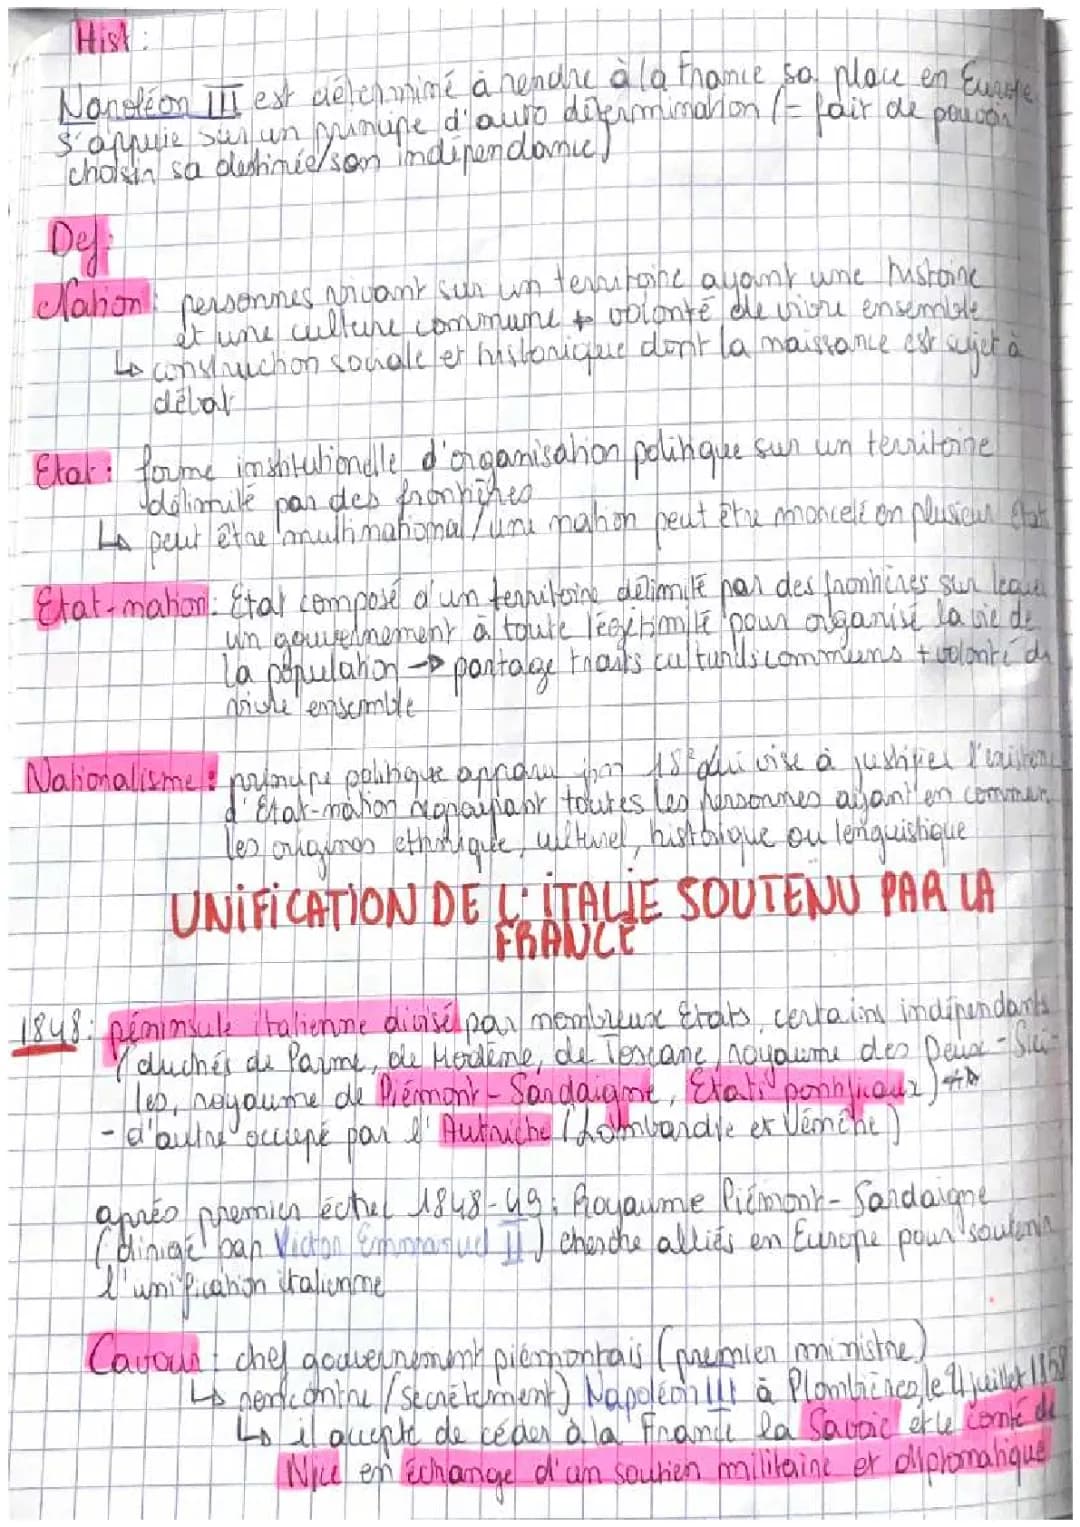 Hist :
Napoléon III est déterminé à rendre à la France sa place en Europe
s'appuie sur un principe d'auto détermination (= fait de pouvoir
choisir sa destinée/son indépendance)
Def:
Nation : personnes vivant sur un territoire ayant une histoire
et une culture commune + volonté de vivre ensemble
↳ construction sociale et historique dont la naissance est sujet à
débat
Etat : forme institutionelle d'organisation politique sur un territoire
délimité par des frontières
↳ peut être multinational/une nation peut être morcelé en plusieur état
Etat-nation: État composé d'un territoire délimité par des frontières sur lequel
un gouvernement à toute légitimité pour organisé la vie de
la population → partage traits culturels communs + volonté de
vivre ensemble
Nationalisme : principe politique apparu fin 18e qui vise à justifier l'existence
d'État-nation regroupant toutes les personnes ayant en commun
les origines ethnique, culturel, historique ou lenguistique
UNIFICATION DE L'ITALIE SOUTENU PAR LA
FRANCE
1848: péninsule italienne divisé par nombreux États, certains indépendants
(duchés de Parme, de Modène, de Toscane, royaume des Deux-Sici-
les, royaume de Piémont-Sardaigne, États pontificaux)
- d'autre occupé par l'Autriche (Lombardie et Vénétie)
après premier échec 1848-49: Royaume Piémont-Sardaigne
(dirigé par Victor Emmanuel II) cherche alliés en Europe pour soutenir
l'unification italienne
Cavour : chef gouvernement piémontais (premier ministre)
↳ rencontre (secrètement) Napoléon III à Plombières le 21 juillet 1858
↳ il accepte de céder à la France la Savoie et le comté de
Nice en échange d'un soutien militaire et diplomatique